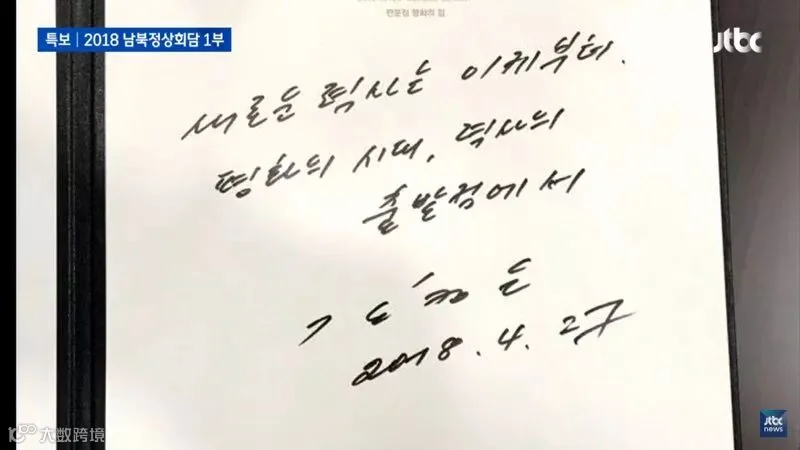 판문점 평화의 집
특보 | 2018 남북정상회담 1부
jtbc
새로운 력사는 이제부터.
평화의 시대, 력사의
출발점에서
김정은
2018. 4. 27
大数跨境
jtbc
news